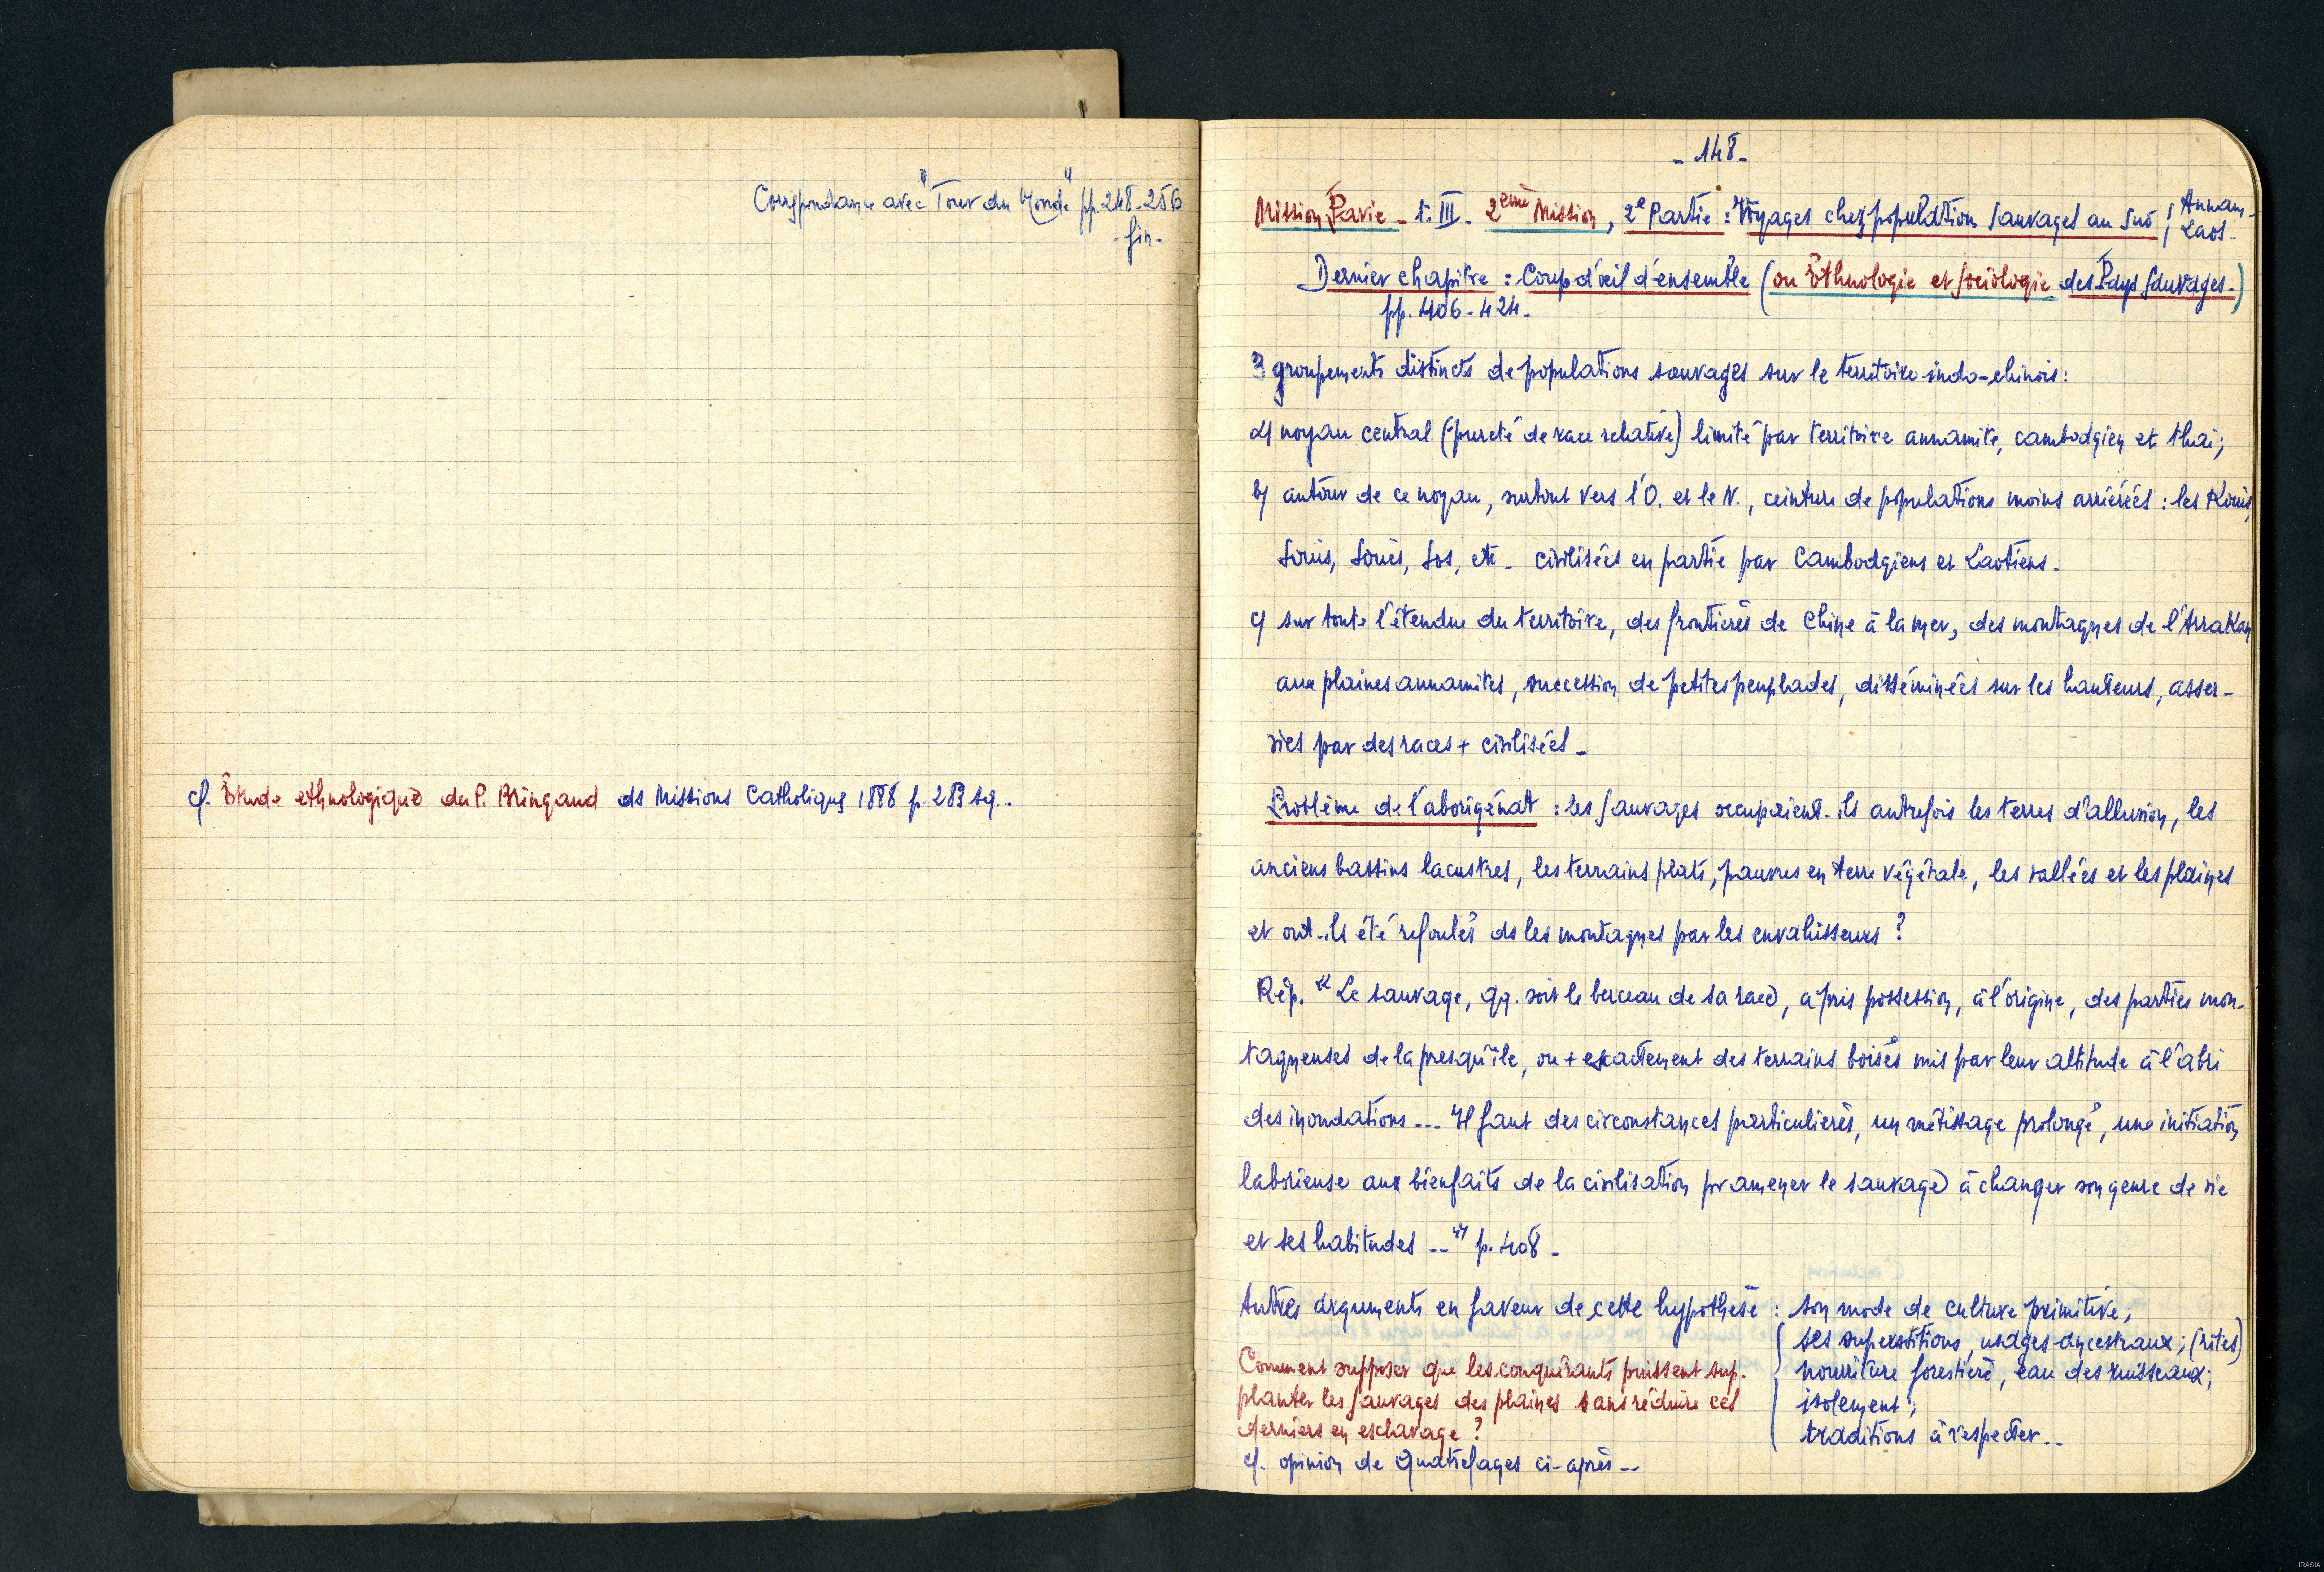 Correspondance avec "Tour du Monde" pp. 248-256
- fin -
cf. Étude ethnologique du P. Bringaud ds Missions Catholiques 1888 p. 283 sq..
- 148 -
Mission Pavie - t. III. 2ème Mission, 2e Partie : Voyages chez population sauvages au Sud
Annam-
Laos-
Dernier chapitre : Coup d'œil d'ensemble (ou Ethnologie et sociologie des Pays Sauvages-)
pp. 406-424-
3 groupements distincts de populations sauvages sur le territoire indo-chinois:
a/ noyau central (pureté de race relative) limité par territoire annamite, cambodgien et thai;
b/ autour de ce noyau, surtout vers l'O. et le N., ceinture de populations moins arriérées : les Kouis,
Souis, Soués, Sos, etc - civilisées en partie par Cambodgiens et Laotiens-
c/ sur toute l'étendue du territoire, des frontières de Chine à la mer, des montagnes de l'Arrakan
aux plaines annamites, succession de petites peuplades, disséminées sur les hauteurs, asser-
vies par des races + civilisées-
Problème de l'aborigénat : les sauvages occupaient-ils autrefois les terres d'alluvion, les
anciens bassins lacustres, les terrains plats, pauvres en terre végétale, les vallées et les plaines
et ont-ils été refoulés ds les montagnes par les envahisseurs ?
Rép. "Le sauvage, qq. soit le berceau de sa race, a pris possession, à l'origine, des parties mon-
tagneuses de la presqu'île, ou + exactement des terrains boisés mis par leur altitude à l'abri
des inondations --- Il faut des circonstances particulières, un métissage prolongé, une initiation
laborieuse aux bienfaits de la civilisation pr amener le sauvage à changer son genre de vie
et ses habitudes --" p. 408-
Autres arguments en faveur de cette hypothèse : son mode de culture primitive;
ses superstitions, usages ancestraux; (rites)
nourriture forestière, eau des ruisseaux;
isolement;
traditions à respecter..
Comment supposer que les conquérants puissent sup-
planter les sauvages des plaines sans réduire ces
derniers en esclavage ?
cf. opinion de Quatrefages ci-après --
IRASIA